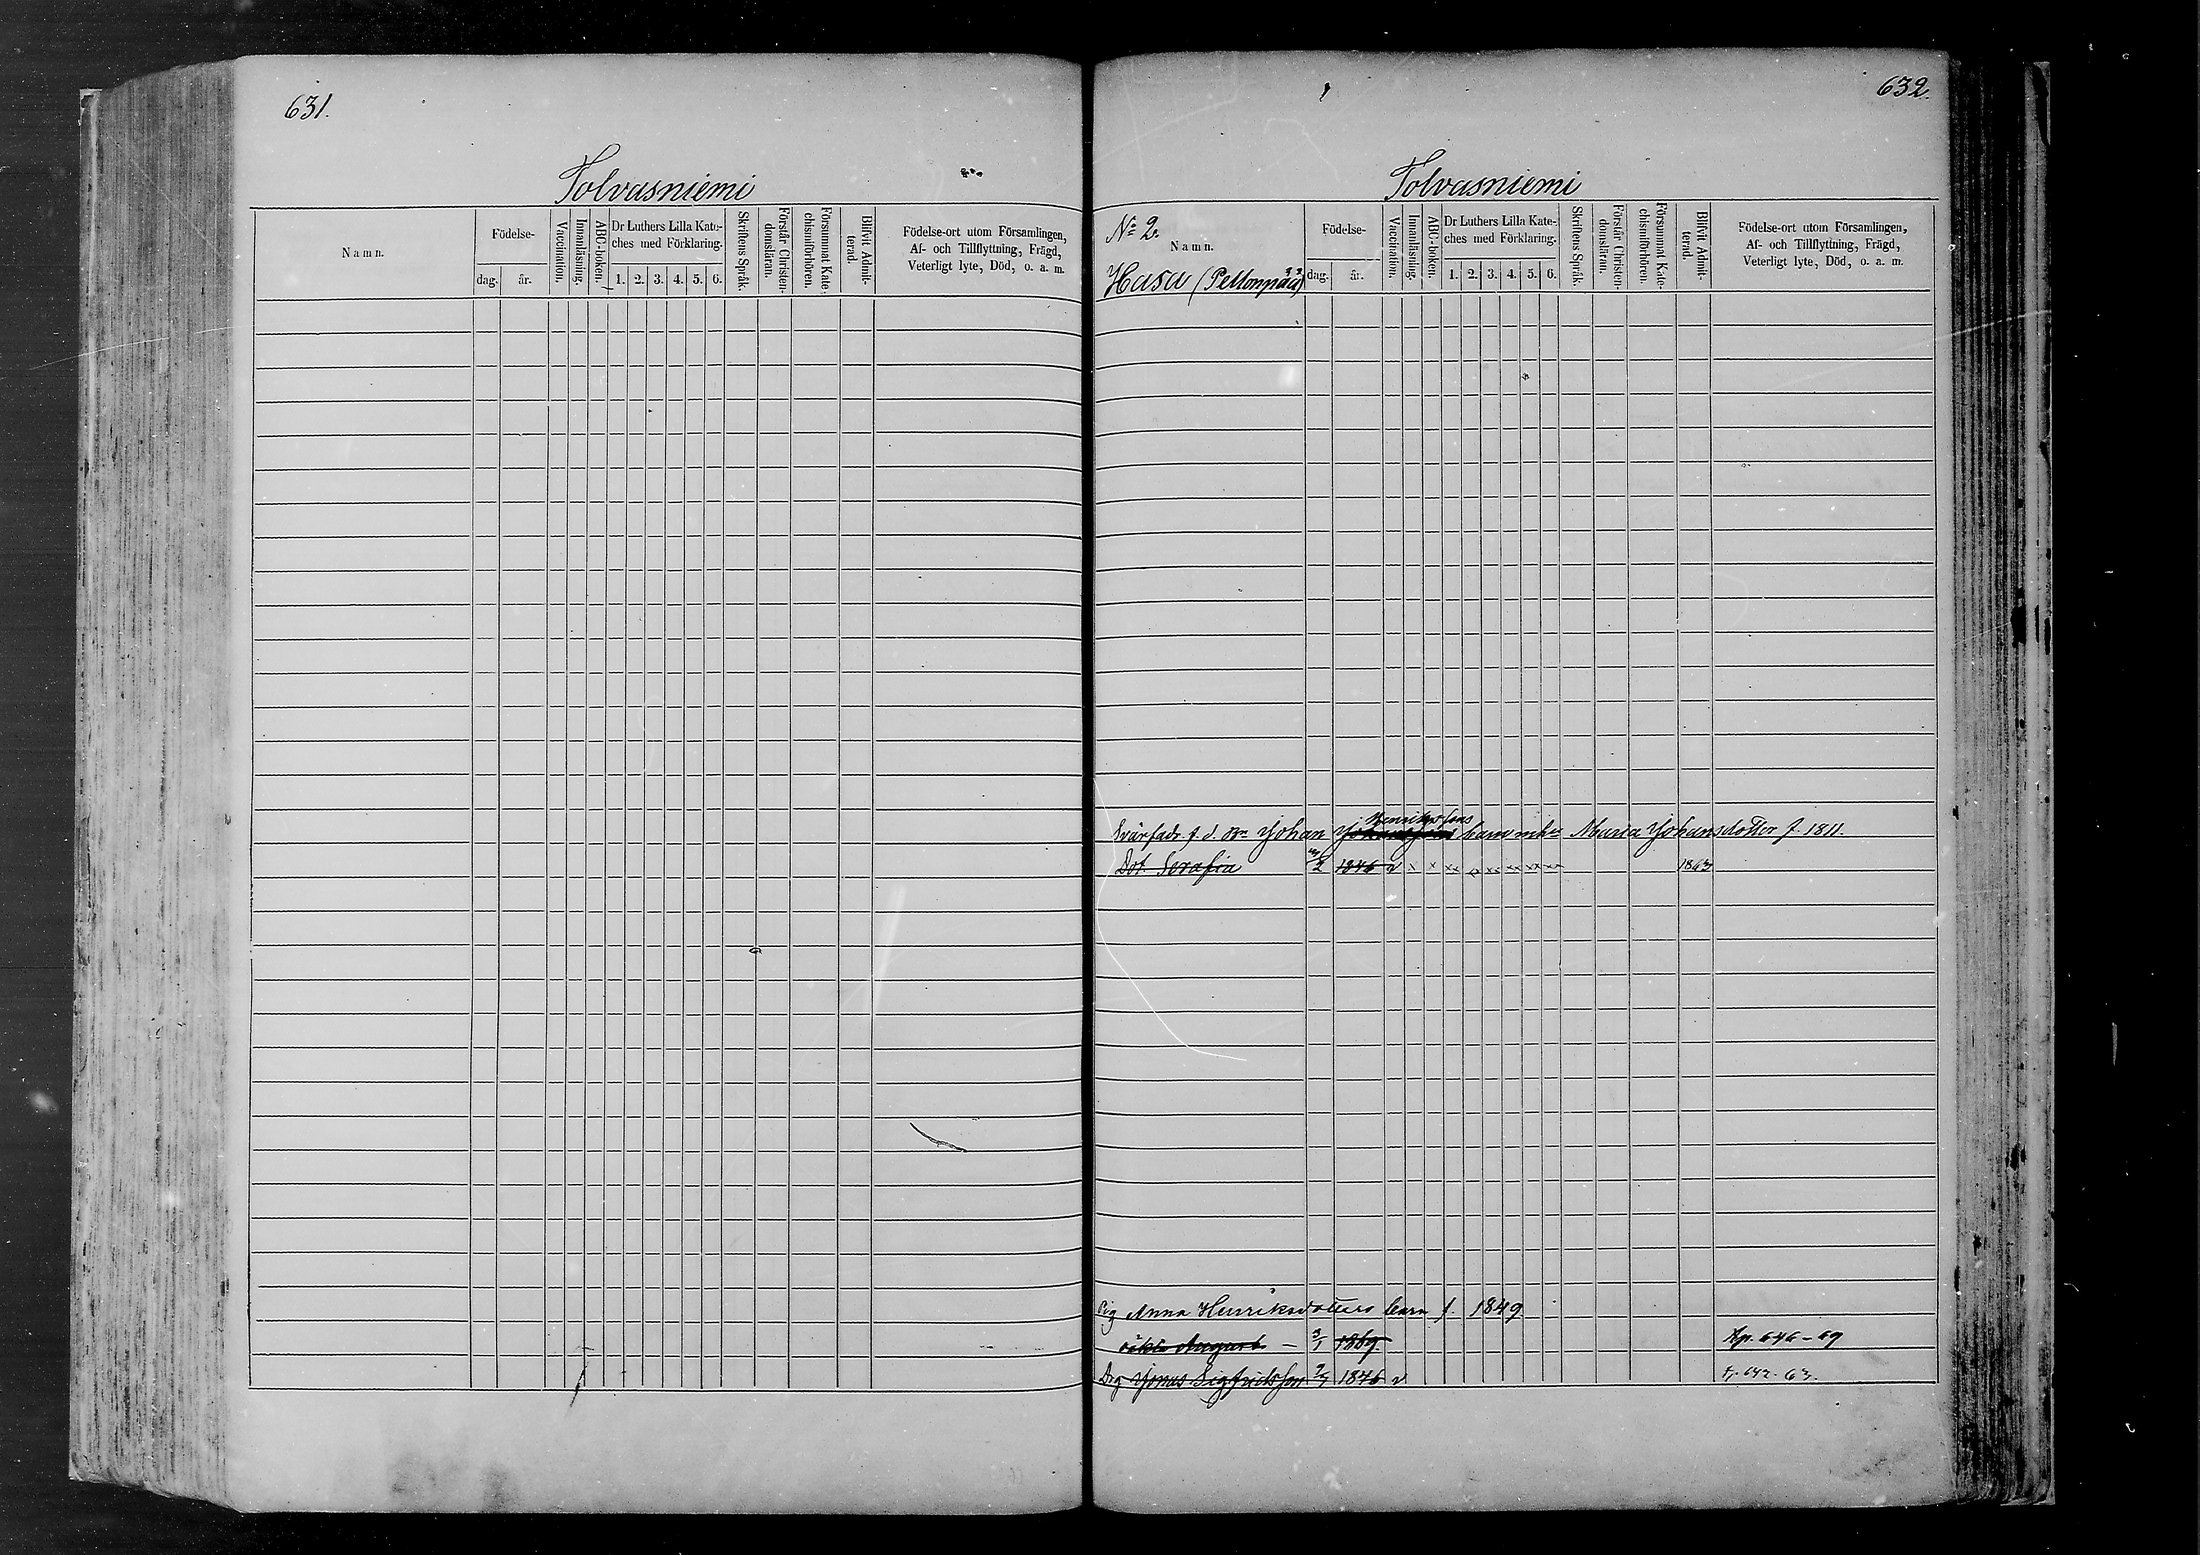 631.
Tolvasniemi
Namn.
Födelse-
dag.
år.
Vaccination.
Innanläsning.
ABC-boken.
Dr Luthers Lilla Kate-
ches med Förklaring.
1. 2. 3. 4. 5. 6.
Skriftens Språk.
Förstår Christen-
domsläran.
Försummat Kate-
chismiförhören.
Blifvit Admit-
terad.
Födelse-ort utom Församlingen,
Af- och Tillflyttning, Frägd,
Veterligt lyte, Död, o. a. m.
632.
Tolvasniemi
No 2.
Namn.
Hasa (Peltonpää)
Födelse-
dag.
år.
Vaccination.
Innanläsning.
ABC-boken.
Dr Luthers Lilla Kate-
ches med Förklaring.
1. 2. 3. 4. 5. 6.
Skriftens Språk.
Förstår Christen-
domsläran.
Försummat Kate-
chismiförhören.
Blifvit Admit-
terad.
Födelse-ort utom Församlingen,
Af- och Tillflyttning, Frägd,
Veterligt lyte, Död, o. a. m.
Henrikssons
Svärfadr. f. d. Johan barn Maria Johansdotter f. 1811.
Dot. Serafia 1846 v x x xx xx xx xx xx 1863
Pig Anna Henriksdotters barn f. 1849
August — 3/1 1869 646-69
Drg Jonas Sigfridsson 1846 v 642. 63.